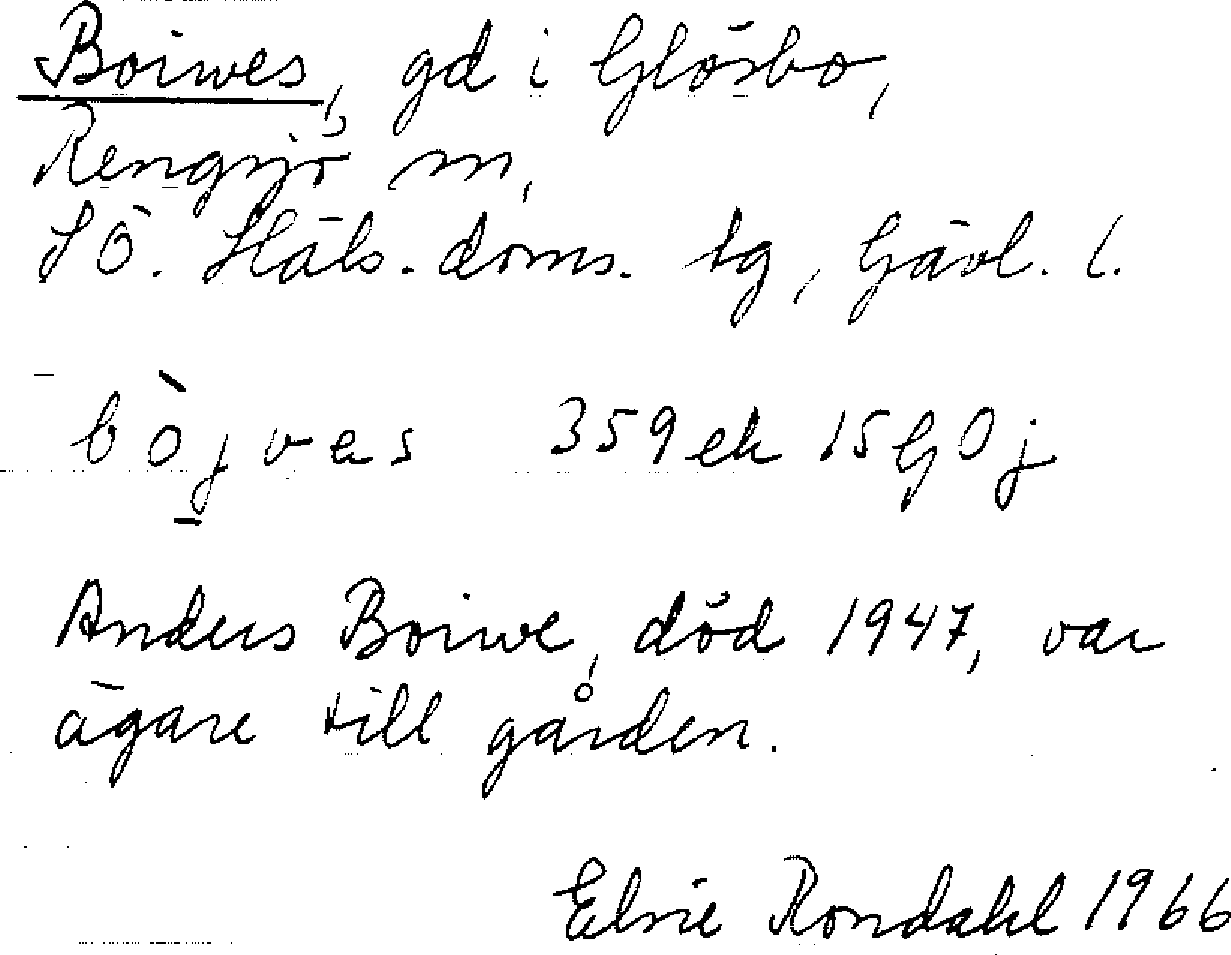 Boiwes, gd i Glösbo,
Rengsjö sn,
SÖ. Häls. doms. tg, Gävl. l.
bò̱jvas 359 ek 15G0j
Anders Boiwe, död 1947, var
ägare till gården.
Elsie Rondahl 1966